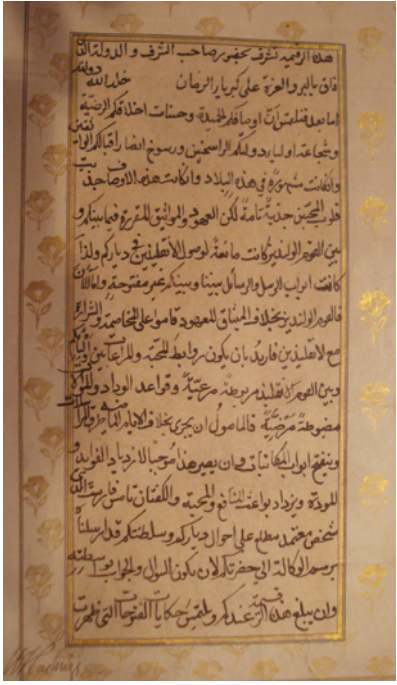 هذه الرقيمة تشرف بحضور صاحب الشرف والدولة الذي
فاق بالبر والعزة على كبريار الزمان خلد الله دولته
اما بعد فلما اوصافكم الحميدة وحسنات اخلاقكم الرضية
وشجاعة اوليا دولتكم الراسخين ورسوخ انصار اقبالكم الواثقين
وان كانت مشهورة في هذه البلاد وان كانت هذه الاوصاف جذبت
قلوب المحبين جذبة تامة لكن العهود والمواثيق المقررة فيما بينكم و
بين القوم الولنديز كانت مانعة لوصول الانقليزين في دياركم ولذا
كانت ابواب الرسل والرسائل بيننا وبينكم غير مفتوحة واما الآن
فالقوم الولنديز بخلاف الميثاق للعهود قاموا على المخاصمة والشرارة
مع الانقليزين فاريد بان يكون روابط المحبة والمراعات بين واليكم
وبين القوم الانقليز مربوطة مرعية وقواعد الوداد والموالات
مضبوطة مرضية فالمامول ان يجرى بخلاف الايام الماضية والمراسلات
وينفتح ابواب المكاتبات وان يصير هذا موجبا لازدياد الفوائد و
للمودة ويزداد بواعث المنافع والمحبة والكفتان تامس فارست الذي
شخص معتمد مطلع على احوال دياركم وسلطنتكم قد ارسلناه
برسم الوكالة الى حضرتكم لان يكون السوال والجواب بواسطته
وان يبلغ هذه عندكم ويلتمس حكايات الفتوحات التي ظهرت